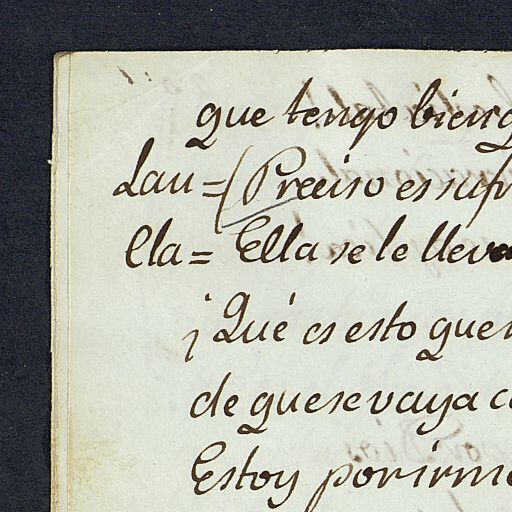 que tengo bien q
Lau = (Preciso es sufr
Cla = Ella se le lleva
¡Qué es esto que
de que se vaya co
Estoy por irme